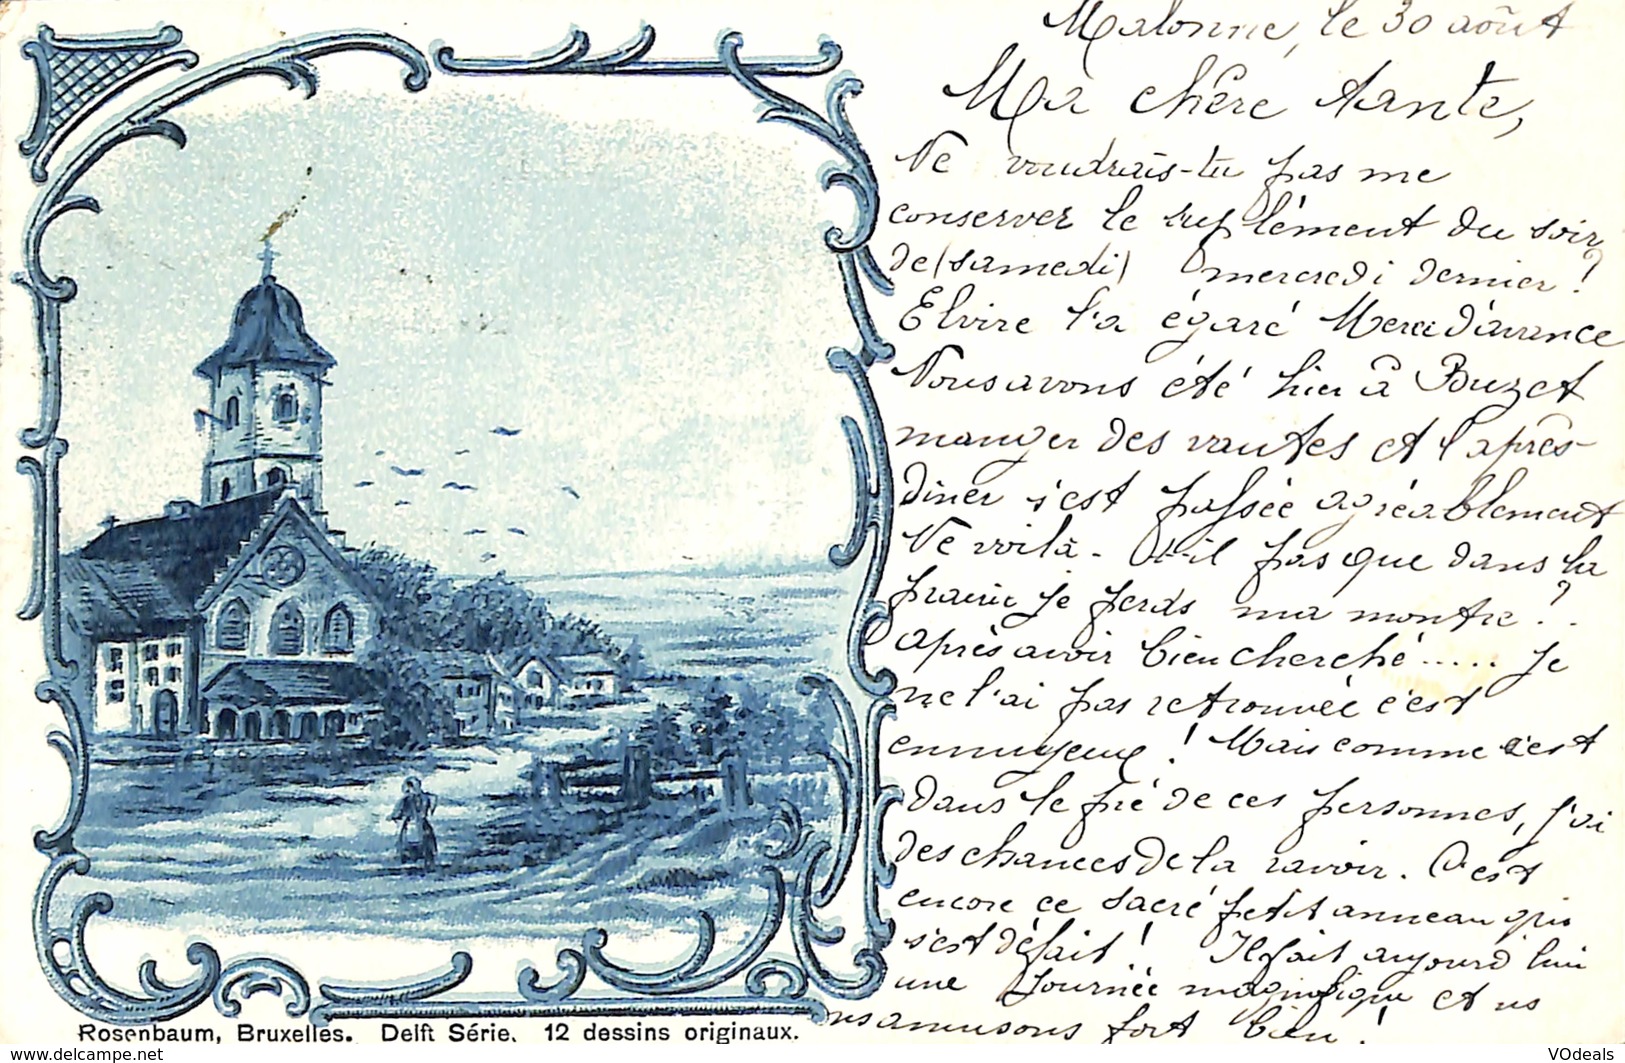 Malonne, le 30 août
Ma chère tante,
Ne voudrais-tu pas me
conserver le suplément du soir
de (samedi) mercredi dernier ?
Elvire l'a égaré Merci d'avance
Nous avons été hier à Bouzet
manger des vautes et l'après-
diner s'est passée agréablement
Ne voilà-t-il pas que dans la
prairie je perds ma montre ?..
après avoir bien cherché..... Je
ne l'ai pas retrouvée c'est
ennuyeux ! Mais comme c'est
dans le pré de ces personnes, j'ai
des chances de la ravoir. C'est
encore ce sacré petit anneau qui
s'est défait ! Il fait aujourd'hui
une journée magnifique et ns
ns amusons fort bien !
Rosenbaum, Bruxelles. Delft Série. 12 dessins originaux.
https://www.delcampe.net
VOdeals